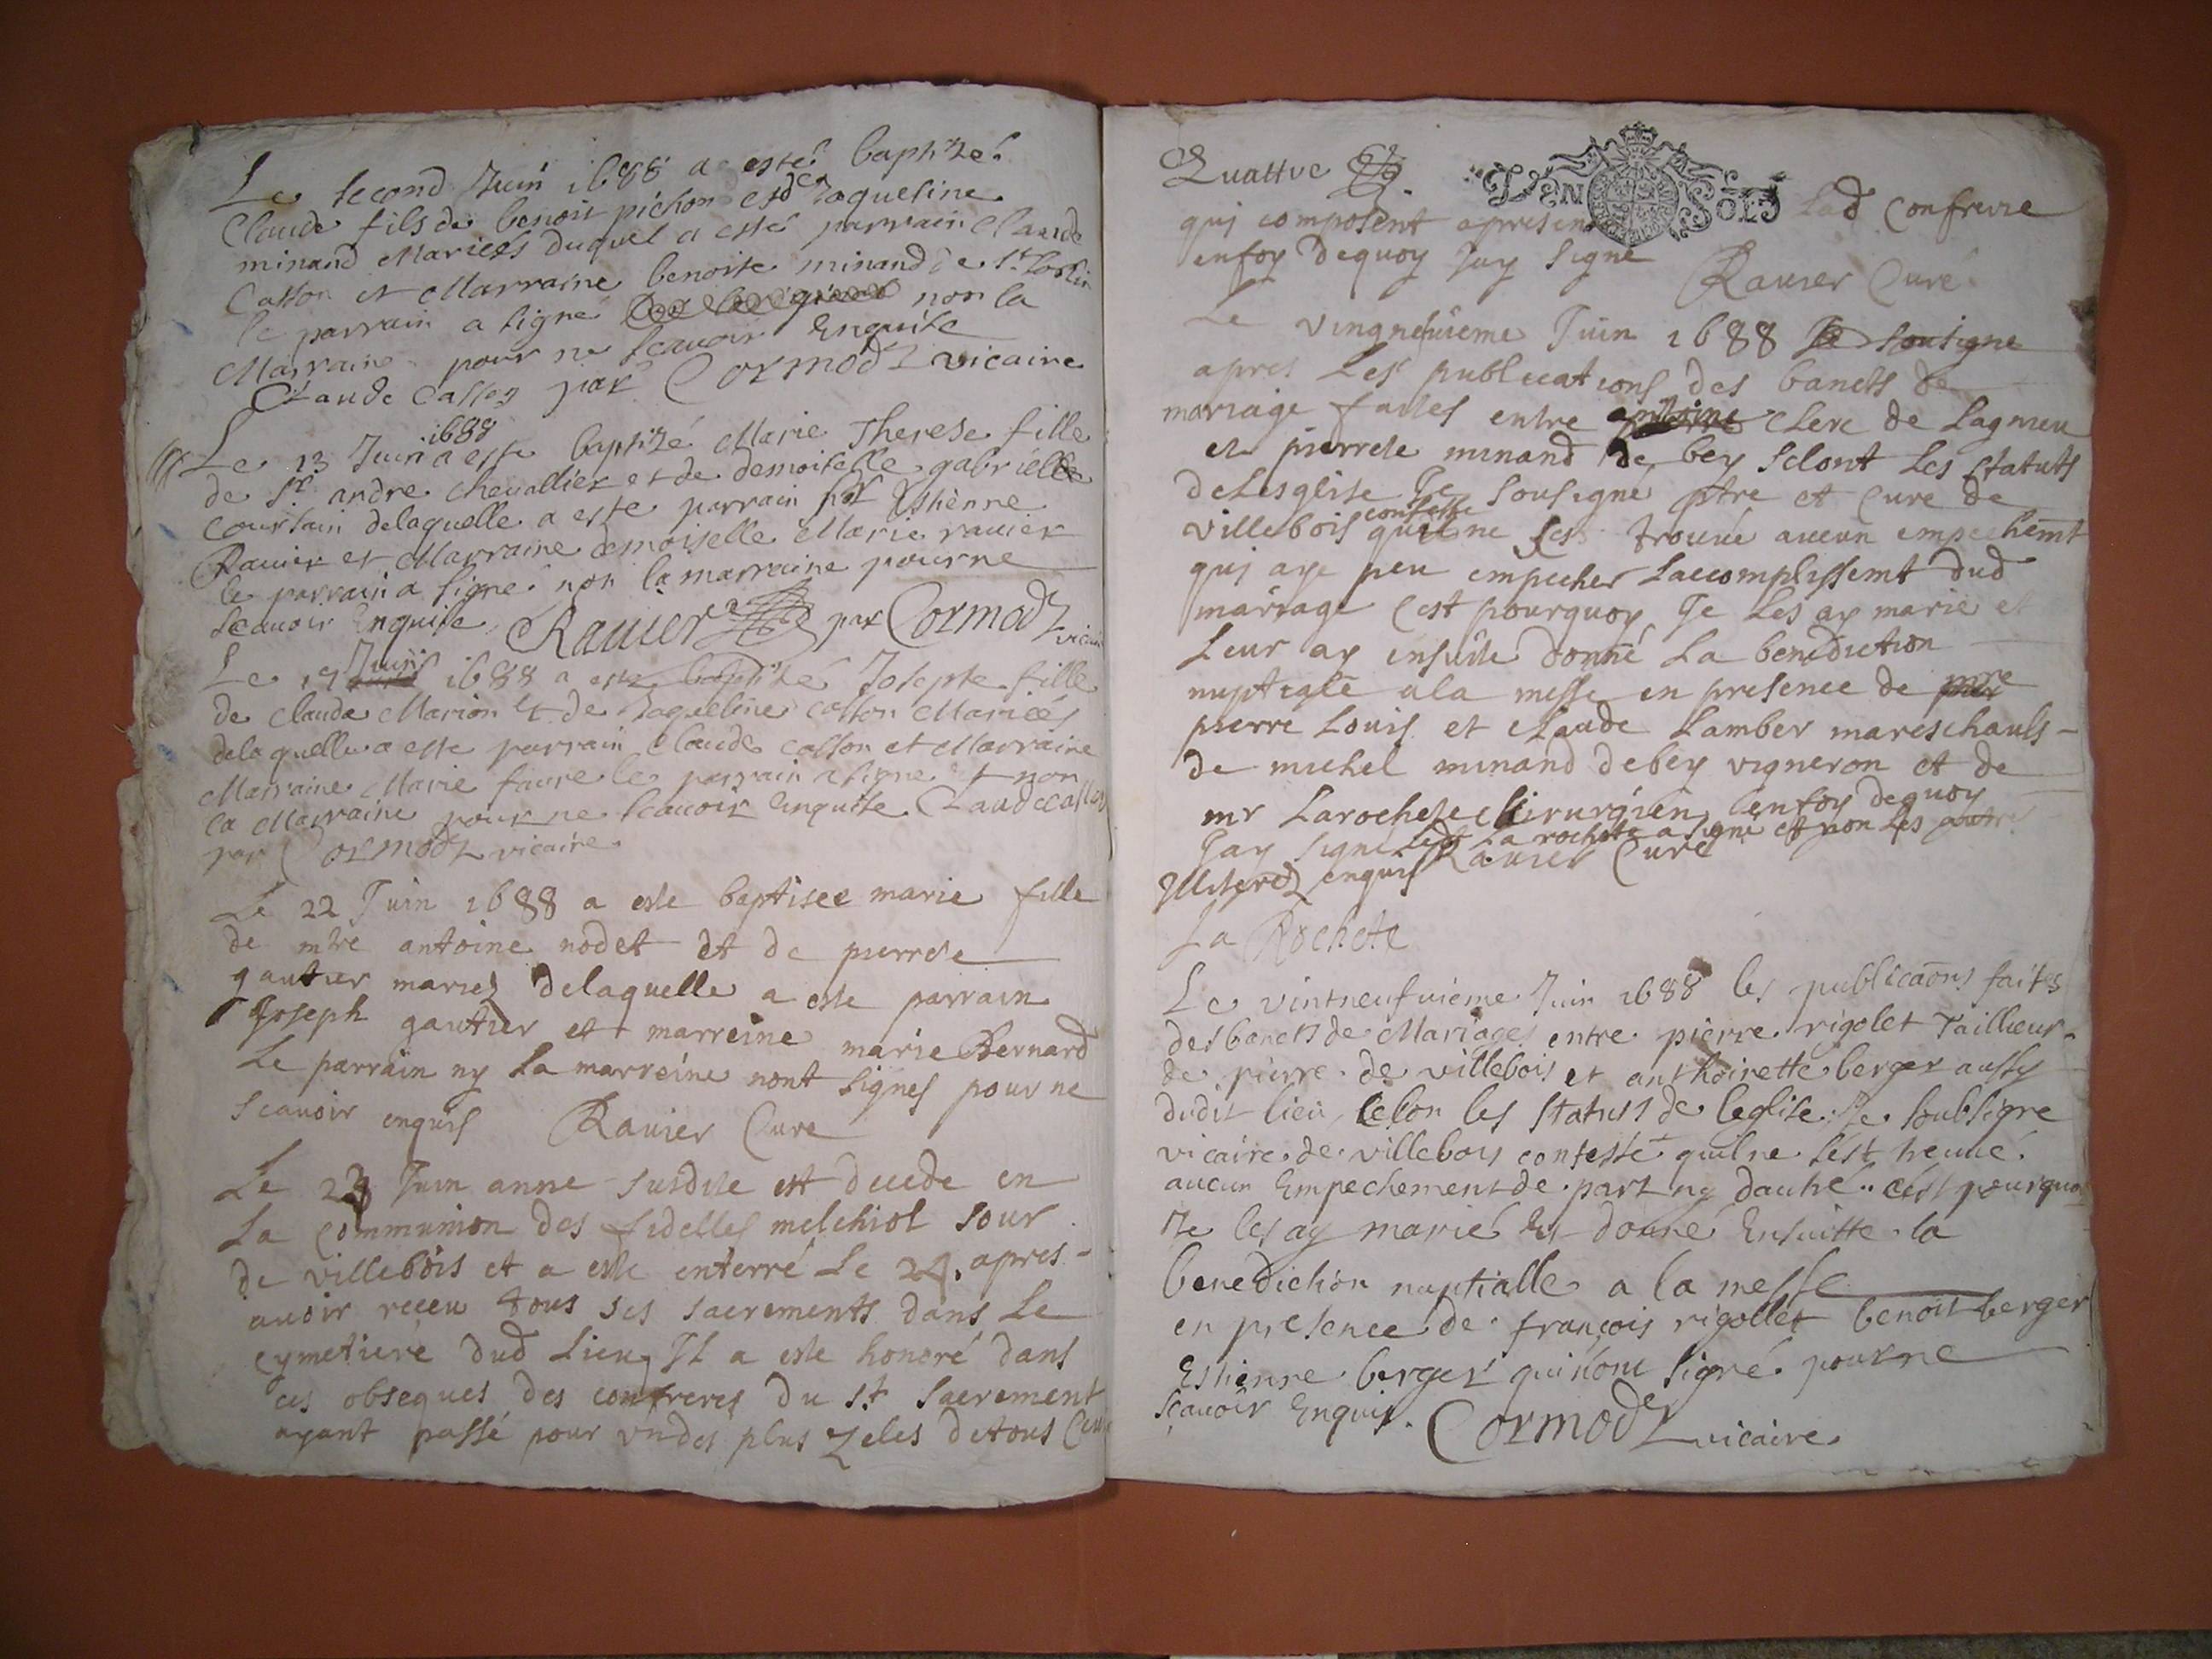 Le second Juin 1688 a esté baptizé
Claude fils de benoit pichon et de Jaqueline
minand Mariées duquel a esté parrain Claude
Casson et Marraine benoite minand de St Sorlin
le parrain a signé non la
Marraine pour ne scavoir Enquise
Claude Casson par Cormod vicaire
Le 13 Juin 1688 a este baptizé Marie Therese fille
de Sr andre chevallier et de demoiselle gabrielle
courtain delaquelle a este parrain Sr Esthienne
Rauier et Marraine demoiselle Marie rauier
le parrain a signé non la marraine pour ne
scauoir Enquise Rauier par Cormod vicaire
Le 19 Juin 1688 a este baptizé Josepte fille
de Claude Marion et de Jaqueline Casson Mariées
delaquelle a este parrain Claude Casson et Marraine
Marraine Marie faure le parrain a signe et non
la Marraine pour ne scauoir Enquise Claude Casson
par Cormod vicaire
Le 22 Juin 1688 a este baptisee marie fille
de mtre antoine nodet et de pierrete
gautier mariez delaquelle a este parrain
Joseph gautier et marreine marie Bernard
Le parrain ny La marreine nont signes pour ne
scauoir enquis Rauier Curé
Le 23 Juin anne susdite est decede en
La Communion des fidelles melchiol sour
de villebois et a este enterré Le 24. apres
auoir receu tous ses sacrements dans Le
cymetiere dud Lieu Il a este honoré dans
ces obseques des confreres du St Sacrement
ayant passé pour vn des plus zeles de tous Ceux
Quattre
TAEN SOLS
qui composent apresent Lad Confrerie
en foy dequoy Jay signe
Rauier Curé
Le vingtneufuieme Juin 1688 Je sousigne
apres Les publications des bancts de
mariage faites entre antoine Clerc de Lagnieu
et pierrete minand de bey selont Les statuts
de Lesglise Je sousigné ptre et Curé de
villebois confesse quil ne sest trouué aucun empechemt
qui aye peu empecher Laccomplissemt dud
mariage Cest pourquoy Je Les ay marié et
Leur ay ensuite donné La benediction
nuptiale a la messe en presence de
pierre Louis et Claude Lamber mareschauls
de michel minand de bey vigneron et de
mr Larochete Chirurgien en foy dequoy
Jay signé Led La rochete a signé et non Les autres
Illiterez enquis Rauier Curé
La Rochete
Le vintneufuieme Juin 1688 les publicaons faites
des bancts de Mariages entre pierre rigolet Tailleur
de pierre de villebois et anthoinette berger aussy
dudit lieu selon les statuts de leglise Je soubsigne
vicaire de villebois conteste quil ne sest treuué
aucun Empechement de part ny dautre cest pourquoi
Je les ay marié Et donné Ensuitte la
benediction nuptialle a la messe
en presence de françois rigollet benoit berger
Esthienne berger qui nont signé pour ne
sçauoir Enquis. Cormod vicaire